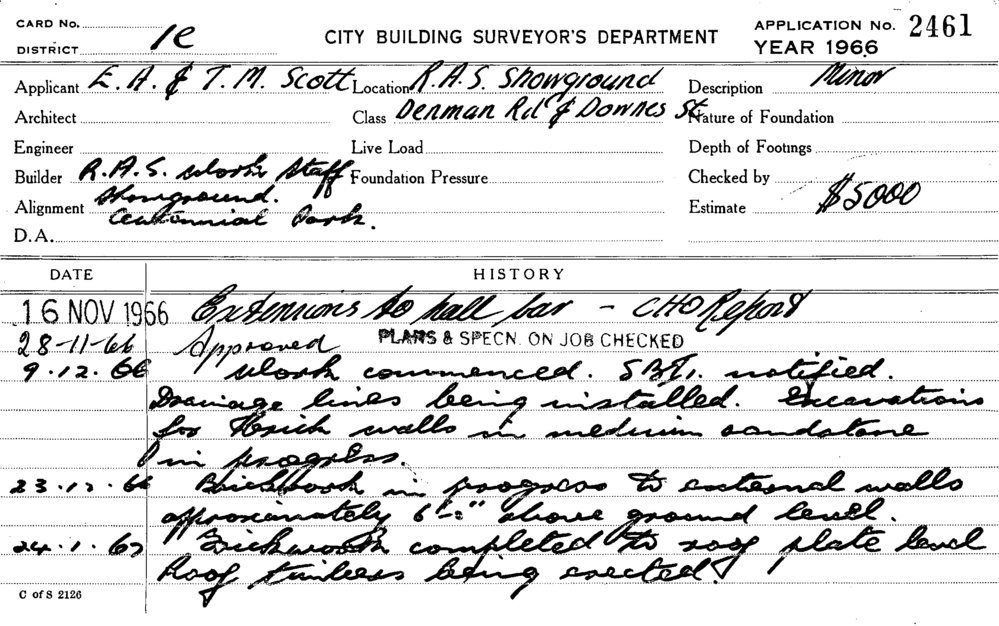 CARD No.
DISTRICT 1c
CITY BUILDING SURVEYOR'S DEPARTMENT
APPLICATION No. 2461
YEAR 1966
Applicant E. A. & T. M. Scott Location R.A.S. Showground Description Minor
Architect Class Denman Rd & Downes St. Nature of Foundation
Engineer Live Load Depth of Footings
Builder R.A.S. Work Staff Foundation Pressure Checked by
Showground.
Alignment Centennial Park. Estimate $5000
D.A.
DATE HISTORY
16 NOV 1966 Extensions to hall bar - CHO Report
28-11-66 Approved PLANS & SPECN. ON JOB CHECKED
9.12.66 Work commenced. notified.
Drainage lines being installed. Excavations
for Brick walls in medium sandstone
in progress.
23.12.66 Brickwork in progress to external walls
approximately above ground level.
24.1.67 Brickwork completed to roof plate level
Roof timbers being erected.
C of S 2126